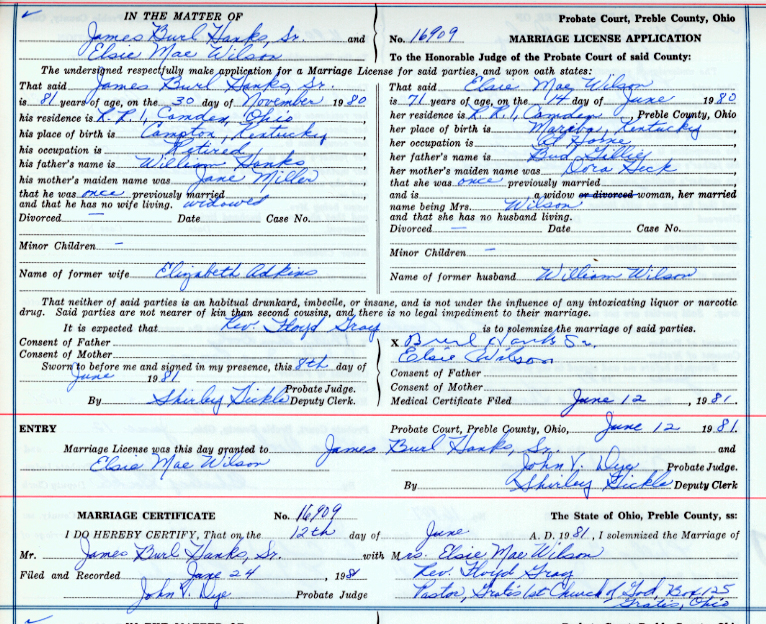 IN THE MATTER OF
James Burl Hanks, Sr. and
Elsie Mae Wilson
Probate Court, Preble County, Ohio
No. 16909 MARRIAGE LICENSE APPLICATION
To the Honorable Judge of the Probate Court of said County:
The undersigned respectfully make application for a Marriage License for said parties, and upon oath states:
That said James Burl Hanks, Sr.
is 81 years of age, on the 30 day of November 1980
his residence is R.R. 1, Camden, Ohio
his place of birth is Campton, Kentucky
his occupation is Retired
his father's name is William Hanks
his mother's maiden name was Jane Miller
that he was once previously married
and that he has no wife living. widowed
Divorced — Date Case No.
Minor Children –
Name of former wife Elizabeth Adkins
That said Elsie Mae Wilson
is 71 years of age, on the 14 day of June 1980
her residence is R.R. 1, Camden, Preble County, Ohio
her place of birth is Kentucky
her occupation is At Home
her father's name is Bud
her mother's maiden name was Dora
that she was once previously married
and is a widow or divorced woman, her married
name being Mrs. Wilson
and that she has no husband living.
Divorced — Date Case No.
Minor Children –
Name of former husband William Wilson
That neither of said parties is an habitual drunkard, imbecile, or insane, and is not under the influence of any intoxicating liquor or narcotic
drug. Said parties are not nearer of kin than second cousins, and there is no legal impediment to their marriage.
It is expected that Rev. Floyd Gray is to solemnize the marriage of said parties.
Consent of Father
Consent of Mother
Sworn to before me and signed in my presence, this 8th day of
June 1981
Probate Judge.
By Shirley Sickle Deputy Clerk.
X Burl Hanks Sr.
Elsie Wilson
Consent of Father
Consent of Mother
Medical Certificate Filed June 12, 1981.
ENTRY Probate Court, Preble County, Ohio, June 12 1981.
Marriage License was this day granted to James Burl Hanks, Sr. and
Elsie Mae Wilson
John V. Dye Probate Judge.
By Shirley Sickle Deputy Clerk
MARRIAGE CERTIFICATE No. 16909 The State of Ohio, Preble County, ss:
I DO HEREBY CERTIFY, That on the 12th day of June A. D. 1981, I solemnized the Marriage of
Mr. James Burl Hanks, Sr. with Mrs. Elsie Mae Wilson
Filed and Recorded June 24, 1981
Rev. Floyd Gray
John V. Dye Probate Judge
Pastor, Gratis 1st Church of God, Box 125
Gratis, Ohio
IN THE MATTER OF
Probate Court, Preble County, Ohio